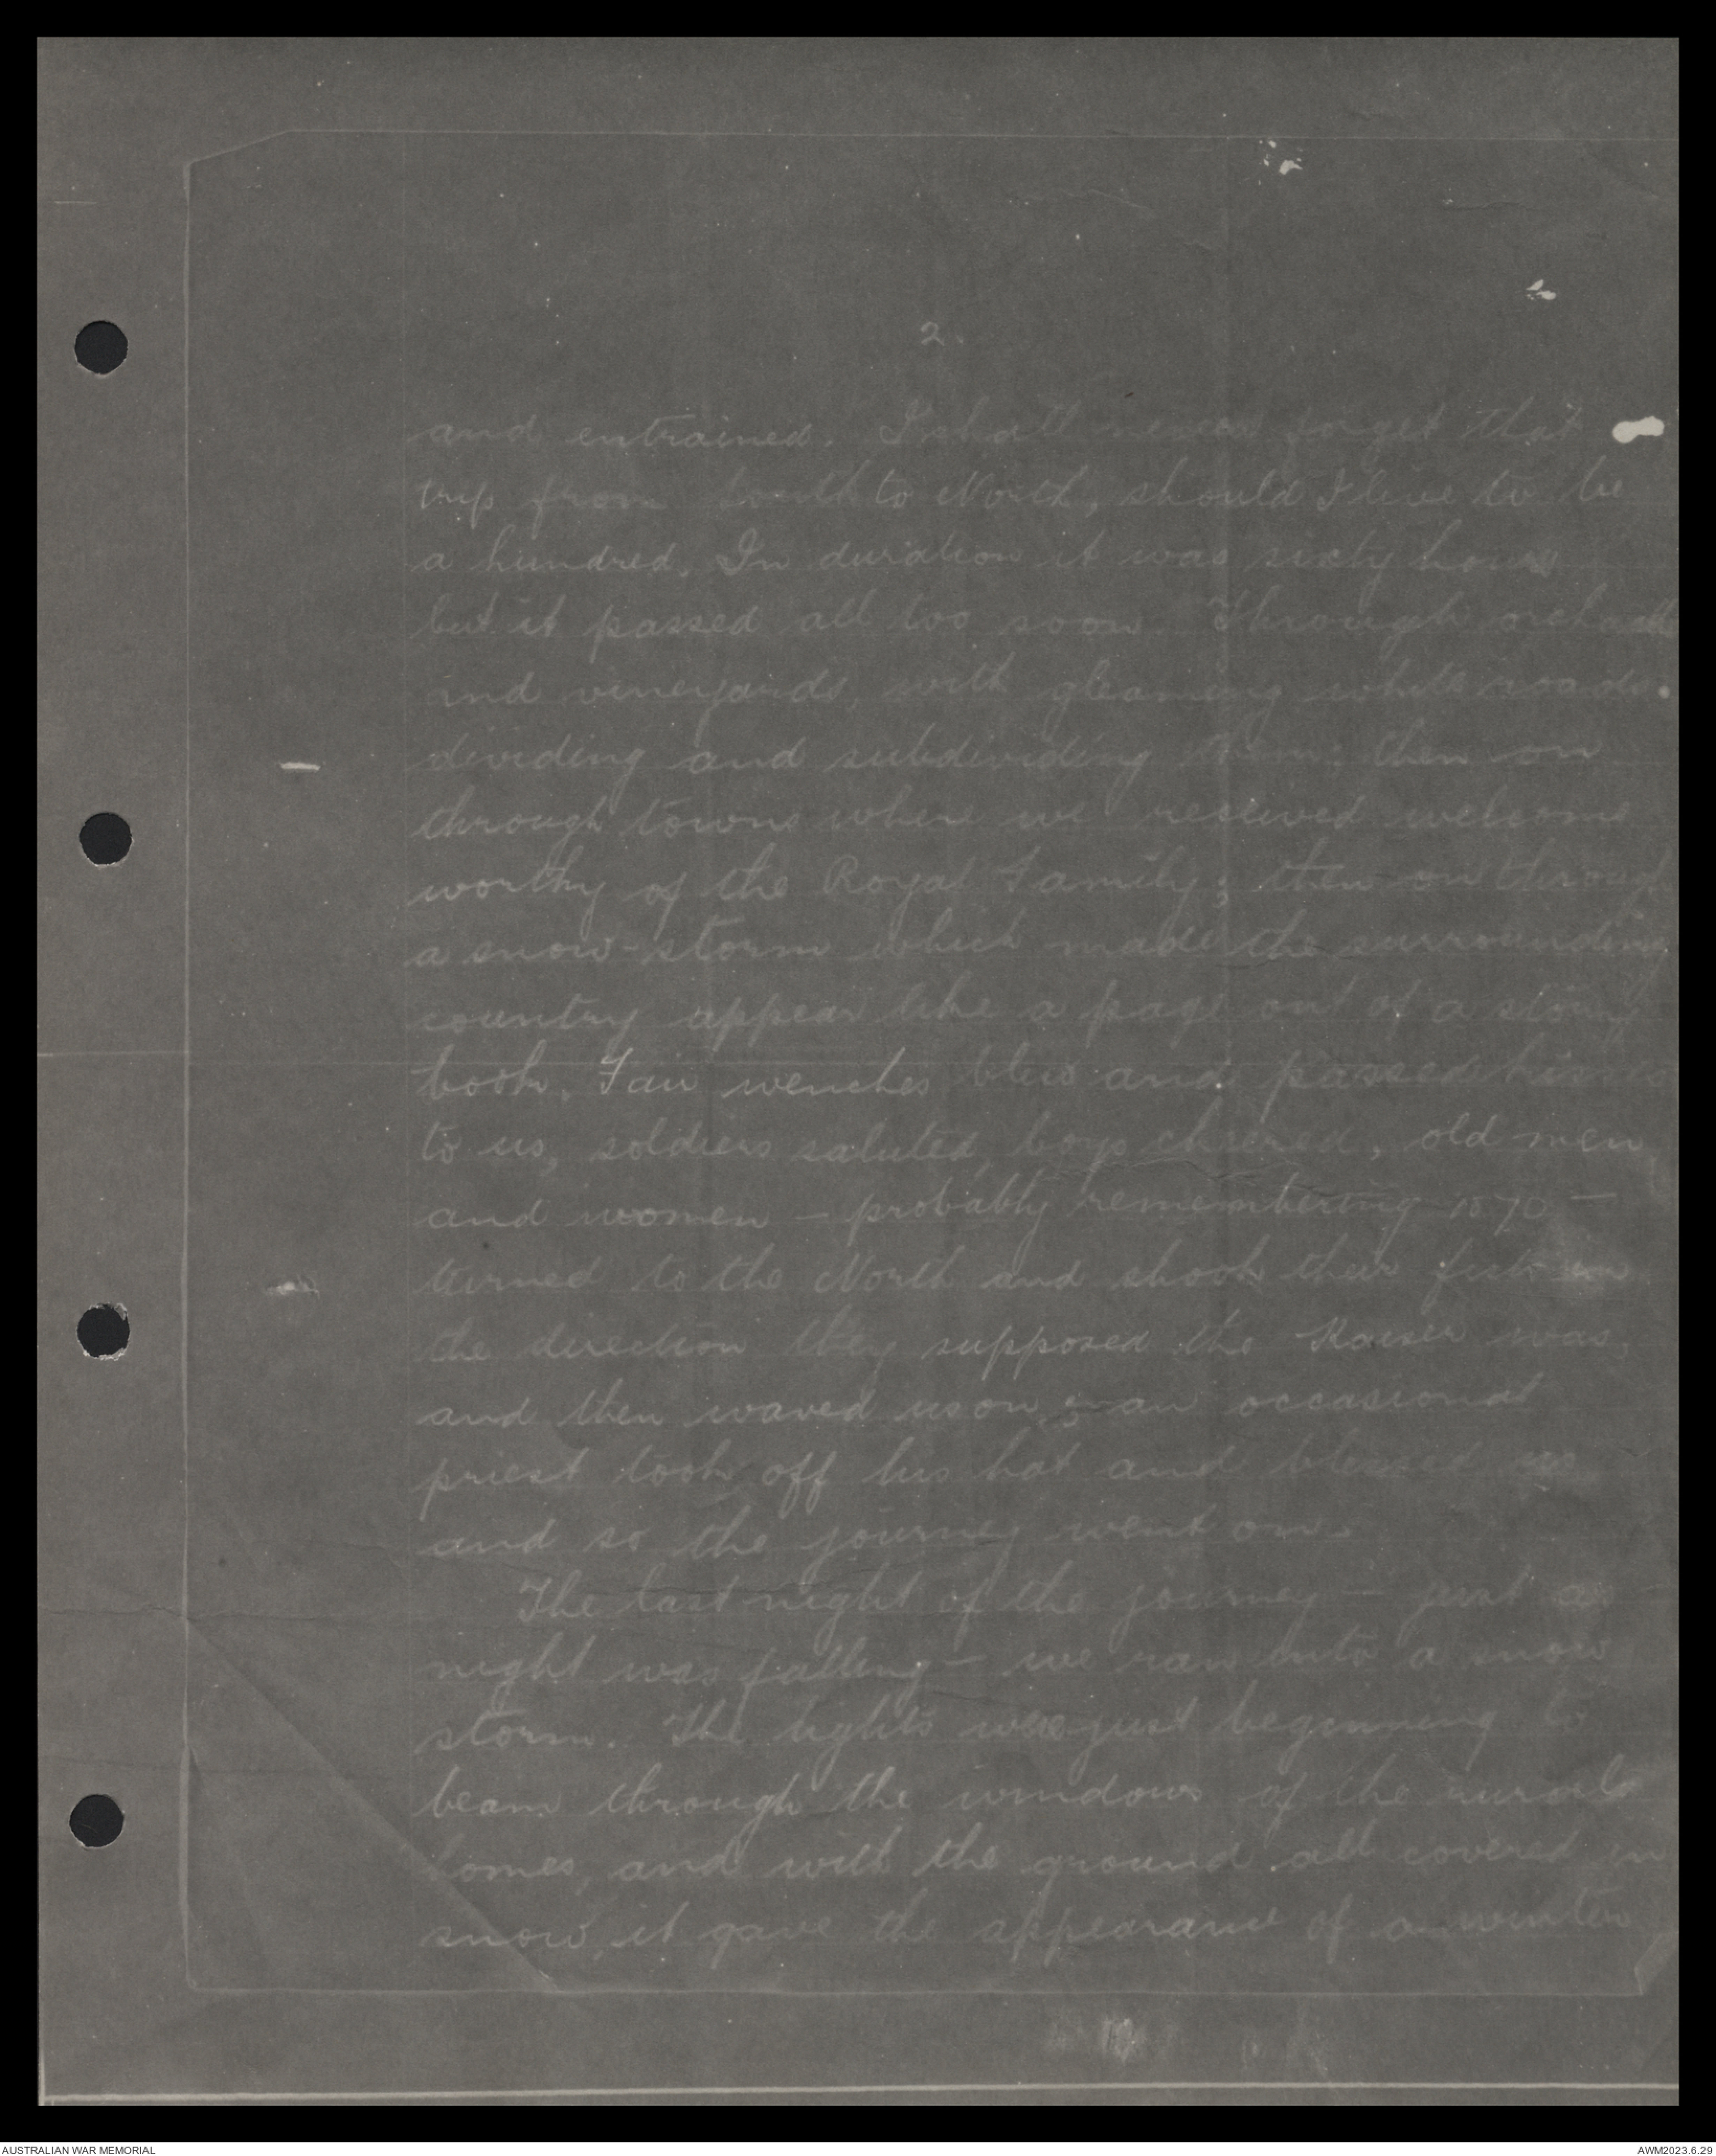 2.
and entrained. I shall never forget that
trip from South to North, should I live to be
a hundred. In duration it was sixty hours
but it passed all too soon. Through orchards
and vineyards, with gleaming white roads
dividing and subdividing them; then on
through towns where we received welcome
worthy of the Royal Family; then on through
a snow-storm which made the surrounding
country appear like a page out of a story
book. Fair wenches blew and passed kisses
to us, soldiers saluted, boys cheered, old men
and women - probably remembering 1870 -
turned to the North and shook their fists in
the direction they supposed the Kaiser was,
and then waved us on; an occasional
priest took off his hat and blessed us
and so the journey went on.
The last night of the journey - just as
night was falling - we ran into a snow
storm. The lights were just beginning to
beam through the windows of the rural
homes, and with the ground all covered in
snow, it gave the appearance of a winter
AUSTRALIAN WAR MEMORIAL
AWM2023.6.29